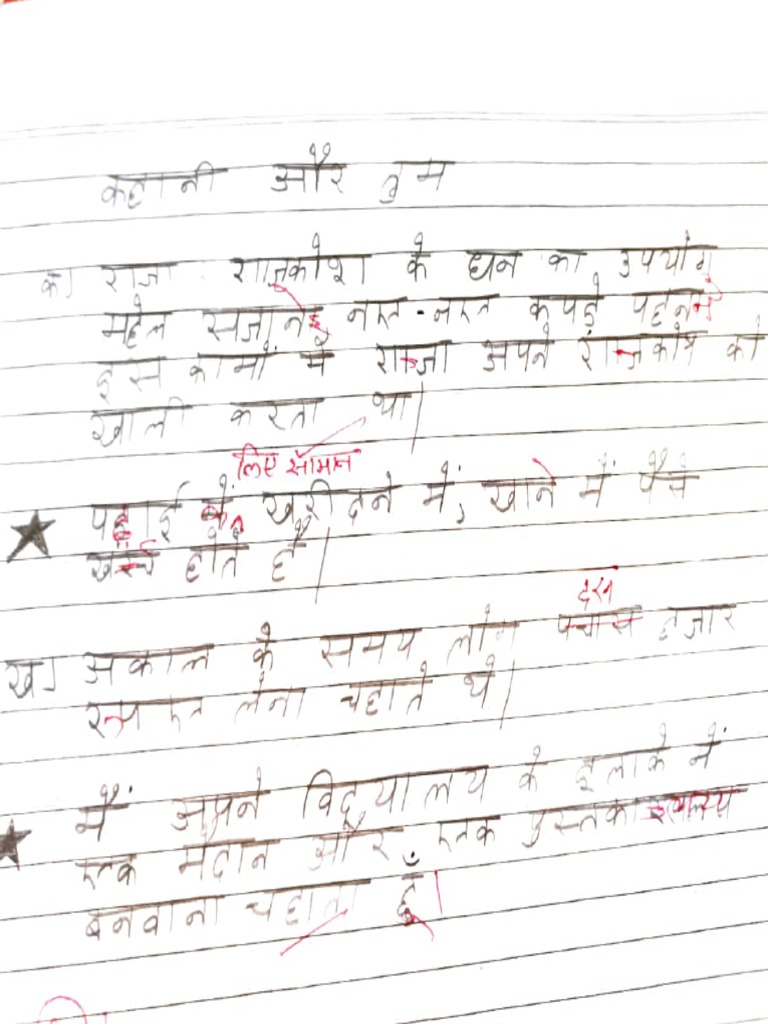 कहानी और तुम
क) राजा राजकोश के धन का उपयोग
महेल सजाने नए-नए कपड़े पहनने
इस कामों में राजा अपने राजकोष को
खाली करता था।
लिए सामान
पढ़ाई के खरीदने में, खाने में पैसे
खर्च होते हैं।
दस
ख) अकाल के समय लोग पचास हजार
रूपए लेना चहाते थे।
मैं अपने विद्यालय के इलाके में
एक मैदान और एक पुस्तकालय
बनवाना चहाता हूँ।